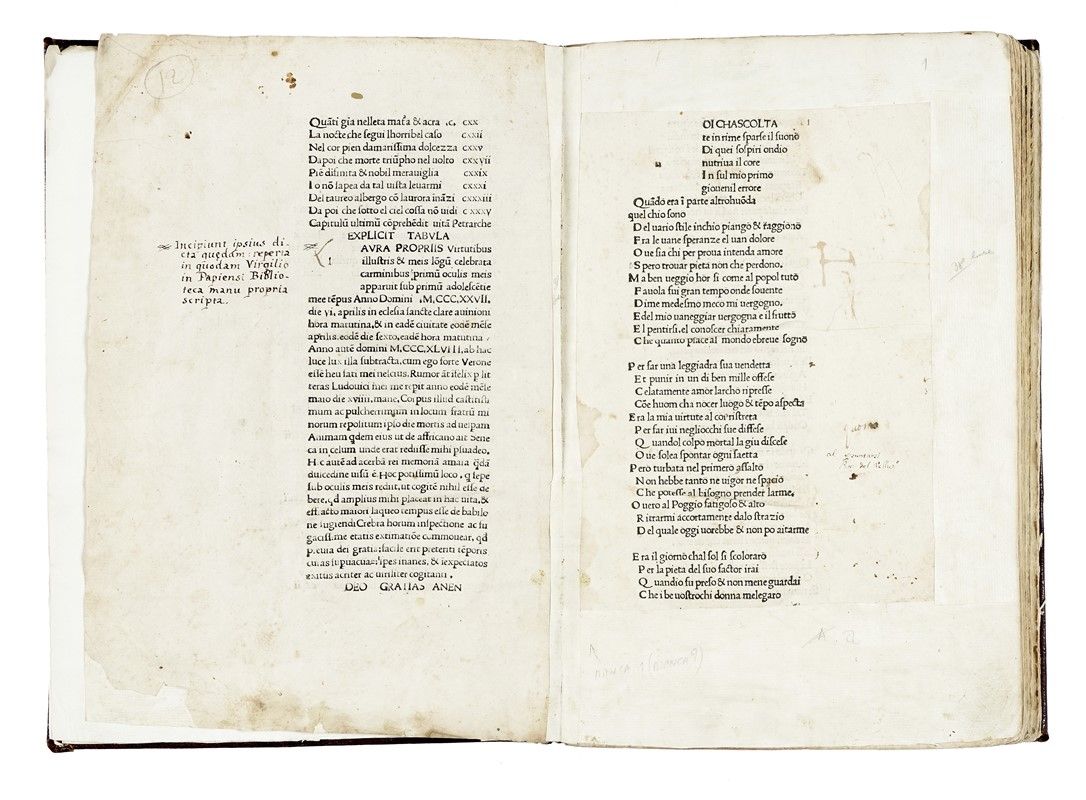 12
Quāti gia nelleta mat'a & acra .c. cxx
La nocte che segui lhorribel caso cxxii
Nel cor pien damarissima dolcezza cxxv
Da poi che morte triūpho nel uolto cxxvii
Piē disinita & nobil merauiglia cxxix
I o nō sapea da tal uista leuarmi cxxxi
Del taureo albergo cō laurora ināzi cxxxiii
Da poi che sotto el ciel cossa nō uidi cxxxv
Capitulū ultimū cōprehēdit uita Petrarche
EXPLICIT TABVLA
AVRA PROPRIIS Virtutibus
illustris & meis lōgū celebrata
carminibus primū oculis meis
apparuit sub primū adolescētie
mee tēpus Anno Domini .M.CCC.XXVII.
die vi. aprilis in eclesia sancte clare auinioni
hora matutina, & in eadē ciuitate eodē mēse
aprilis. eodē die sexto, eadē hora matutina
Anno autē domini M.CCC.XLVIII. ab hac
luce lux illa subtracta, cum ego forte Verone
essē heu fati mei nescius. Rumor āt ifelix p lit
teras Ludouici mei me repit anno eodē mēse
maio die xviiii. mane, Corpus illud castissi
mum ac pulcherrimum in locum fratrū mi
norum repositum: ipso die mortis ad uespam
Animam qdem eius ut de affricano ait Sene
ca in celum unde erat rediisse mihi psuadeo.
H c autē ad acerbā rei memoriā amara qdā
dulcedine uisū ē. Hoc potissimū loco, q sepe
sub oculis meis redit, ut cogitē nihil esse de
bere, qd amplius mihi placeat in hac uita, &
eff. acto maiori laqueo tempus esse de babilo
ne fugiendi Crebra horum inspectione ac fu
gaciss. me etatis extimatiōe commouear, qd
p. euia dei gratia: facile erit preteriti tēporis
curas supuacuas: spes inanes, & iexpectatos
exitus acriter ac uiriliter cogitanti.
DEO GRATIAS ANEN
Incipiunt ipsius di-
cta quędam: reperta
in quodam Virgilio
in Papiensi Biblio-
teca manu propria
scripta.
1
OI CHASCOLTA
te in rime sparse il suono
Di quei sospiri ondio
nutriua il core
I n sul mio primo
giouenil errore
Quādo era ī parte altrohuōda
quel chio sono
D el uario stile inchio piango & raggiono
F ra le uane speranze el uan dolore
O ue sia chi per proua intenda amore
S pero trouar pieta non che perdono.
M a ben ueggio hor si come al popol tuto
F auola fui gran tempo onde souente
D ime medesmo meco mi uergogno.
E del mio uaneggiar uergogna e il frutto
E l pentirsi. el conoscer chiaramente
C he quanto piace al mondo ebreue sogno
P er far una leggiadra sua uendetta
E t punir in un di ben mille offese
C elatamente amor larcho ripresse
Cōe huom cha nocer luogo & tēpo aspecta
E ra la mia uirtute al cor ristreta
P er far iui negliocchi sue diffese
Q uandol colpo mortal la giu discese
O ue solea spontar ogni saetta
P ero turbata nel primero assalto
N on hebbe tanto ne uigor ne spacio
C he potesse al bisogno prender larme.
O uero al Poggio fatigoso & alto
R itrarmi accortamente dalo strazio
D el quale oggi uorebbe & non po aitarme
E ra il giorno chal sol si scoloraro
P er la pieta del suo factor irai
Q uandio fu preso & non mene guardai
C he i be uostrochi donna melegaro